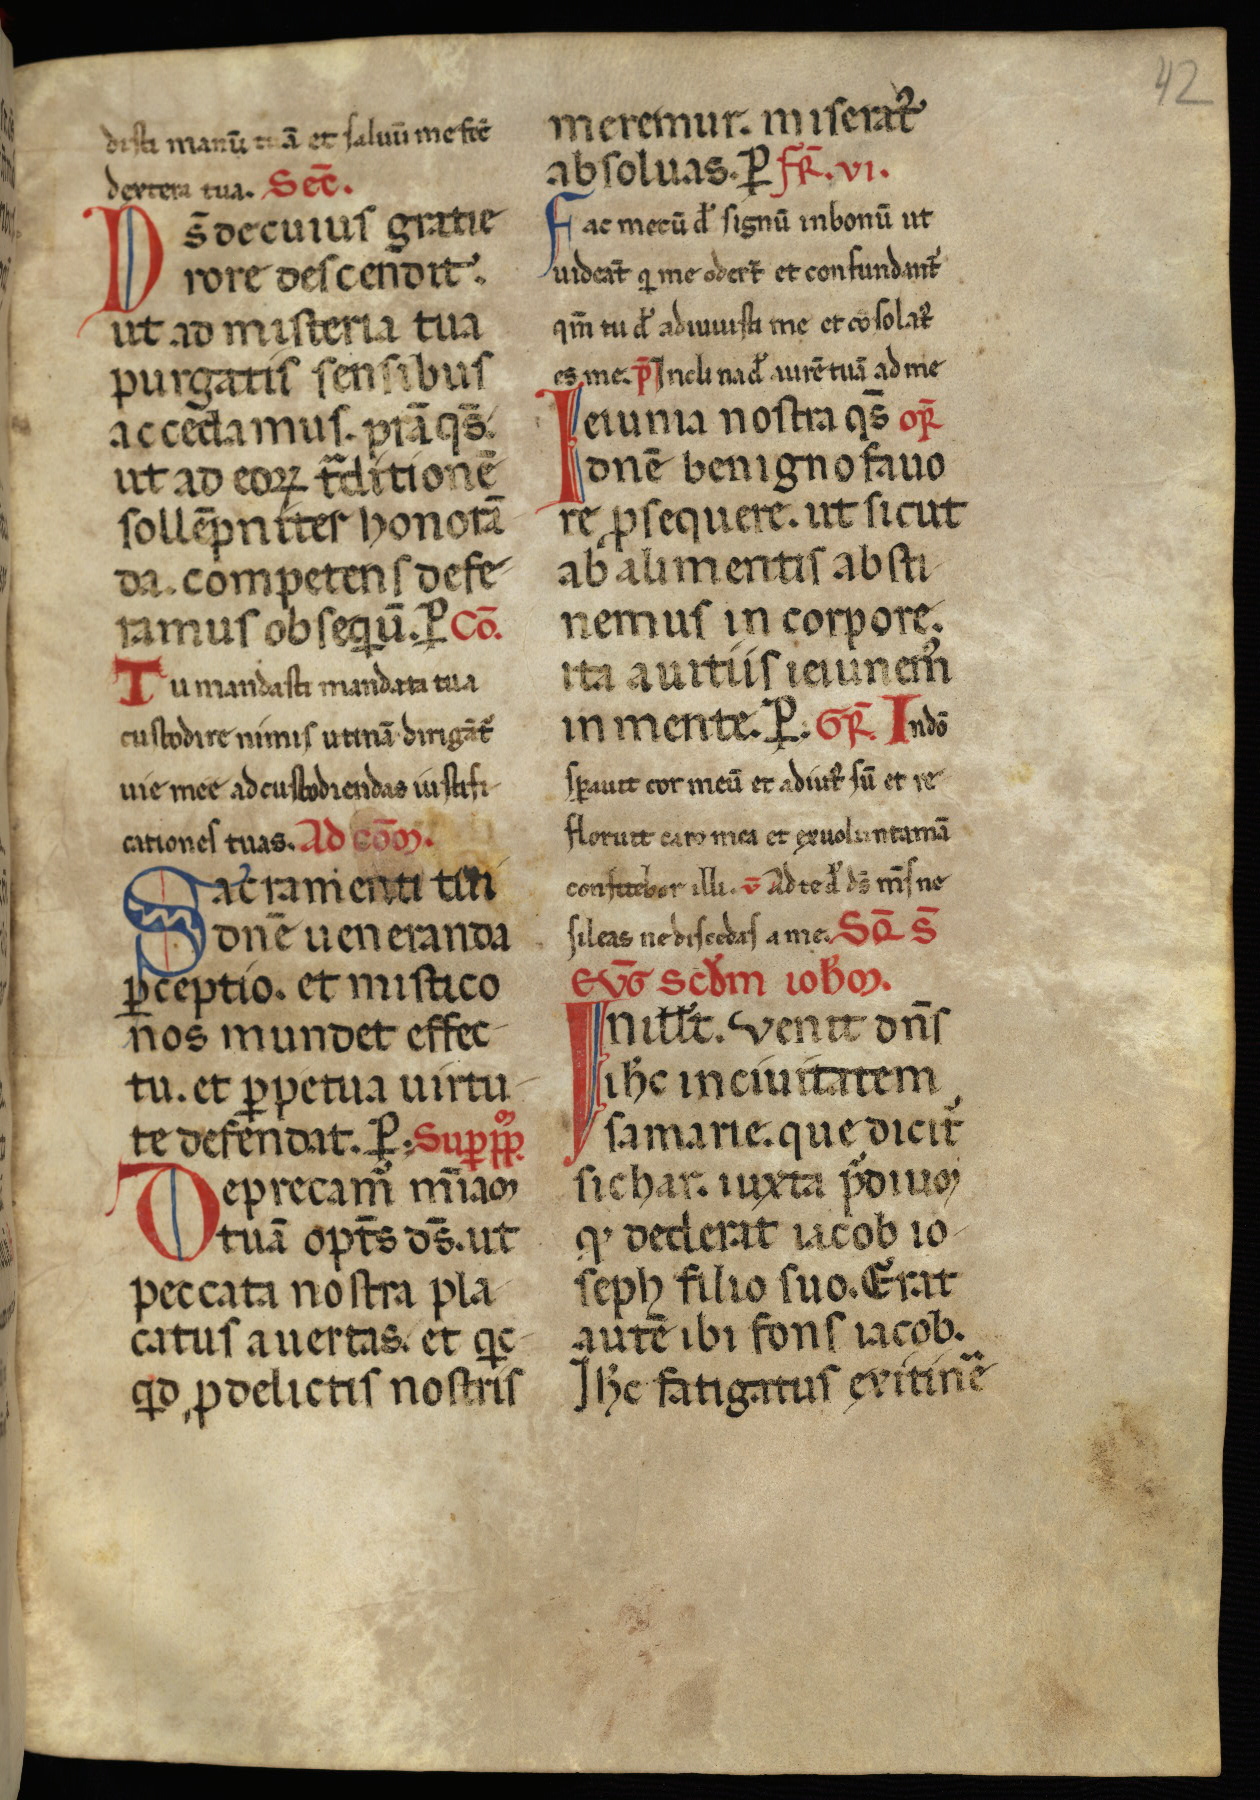 42
disti manū tuā et saluū me fec̄
dextera tua. Sec̄.
Ds̄ de cuius gratie
rore descendit.
ut ad misteria tua
purgatis sensibus
accedamus. prā qs̄.
ut ad eoꝝ t̄ditionē
sollēpniter honorā
da. competens defe
ramus obsequiū. P̱ Cō.
Tu mandasti mandata tua
custodire nimis utinā dirigāt᷑
uie mee ad custodiendas iustifi
cationes tuas. Ad cōm̄.
Sacramenti tui
dn̄e ueneranda
ꝑceptio. et mistico
nos mundet effec
tu. et ꝑpetua uirtu
te defendat. P̱. Suꝑ ppłm.
Deprecam᷑ mīam
tuā opt̄s ds̄. ut
peccata nostra pla
catus auertas. et qc
qd ꝓ delictis nostris
meremur. miserat᷑
absoluas. P̱ FR̄. VI.
Fac mecū d̄ signū in bonū ut
uideāt qi me odert̄ et confundant᷑
qm̄ tu d̄ adiuuisti me et cōsolat᷑
es me. p̄ Inclina d̄ aurē tuā ad me
Ieiunia nostra qs̄ OR̄
dn̄e benigno fauo
re ꝓsequere. ut sicut
ab alimentis absti
nemus in corpore.
ita a uitiis ieiunem᷑
in mente. P̱. GR̄. In dō
sꝑauit cor meū et adiut᷑ sū et re
floruit caro mea et ex uoluntate mā
confitebor illi. v̄ Ad te d̄ ds̄ m̄s ne
sileas ne discedas a me. SQ̄ S̄
EVḠ SCDM IOHM.
In illt̄. Venit dn̄s
ihc̄ in ciuitatem
samarie. que dicit᷑
sichar. iuxta p̄dium
qᵈ dederat iacob io
seph filio suo. Erat
autē ibi fons iacob.
Ihc̄ fatigatus ex itine᷑